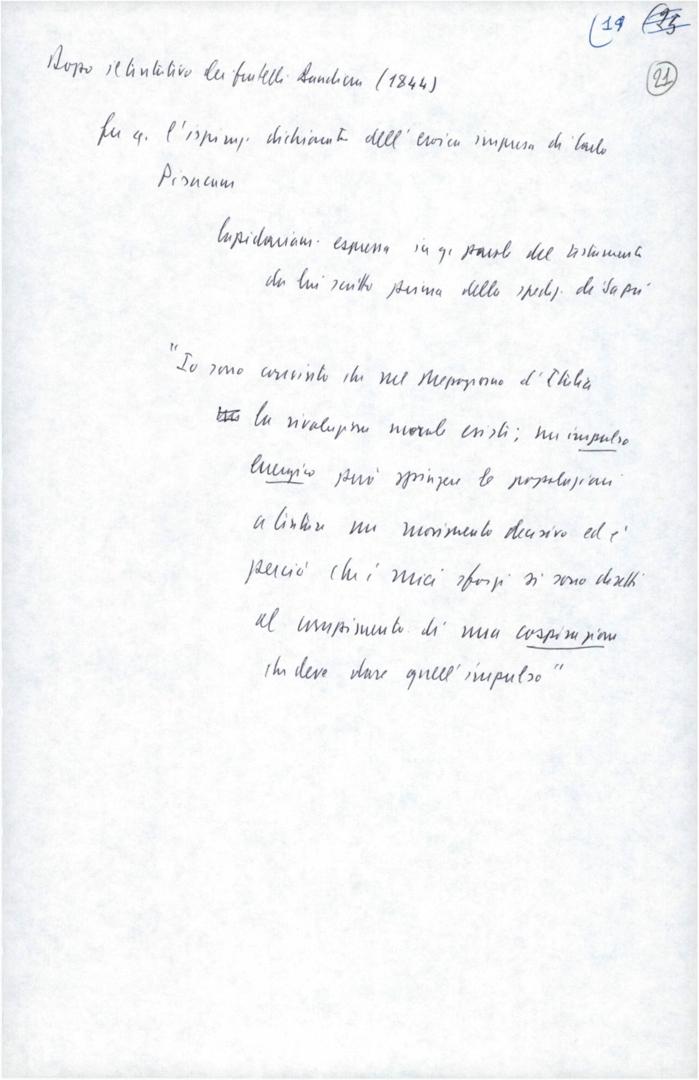 (19 25
21
Dopo il tentativo dei fratelli Bandiera (1844)
fu q. l'ispiraz. dichiarata dell'eroica impresa di Carlo
Pisacane
lapidariam. espressa in q. parole del testamento
da lui scritto prima della spediz. di Sapri
"Io sono convinto che nel Mezzogiorno d'Italia
la rivoluzione morale esisti; un impulso
energico può spingere le popolazioni
a tentare un movimento decisivo ed è
perciò che i miei sforzi si sono diretti
al compimento di una cospirazione
che deve dare quell'impulso"